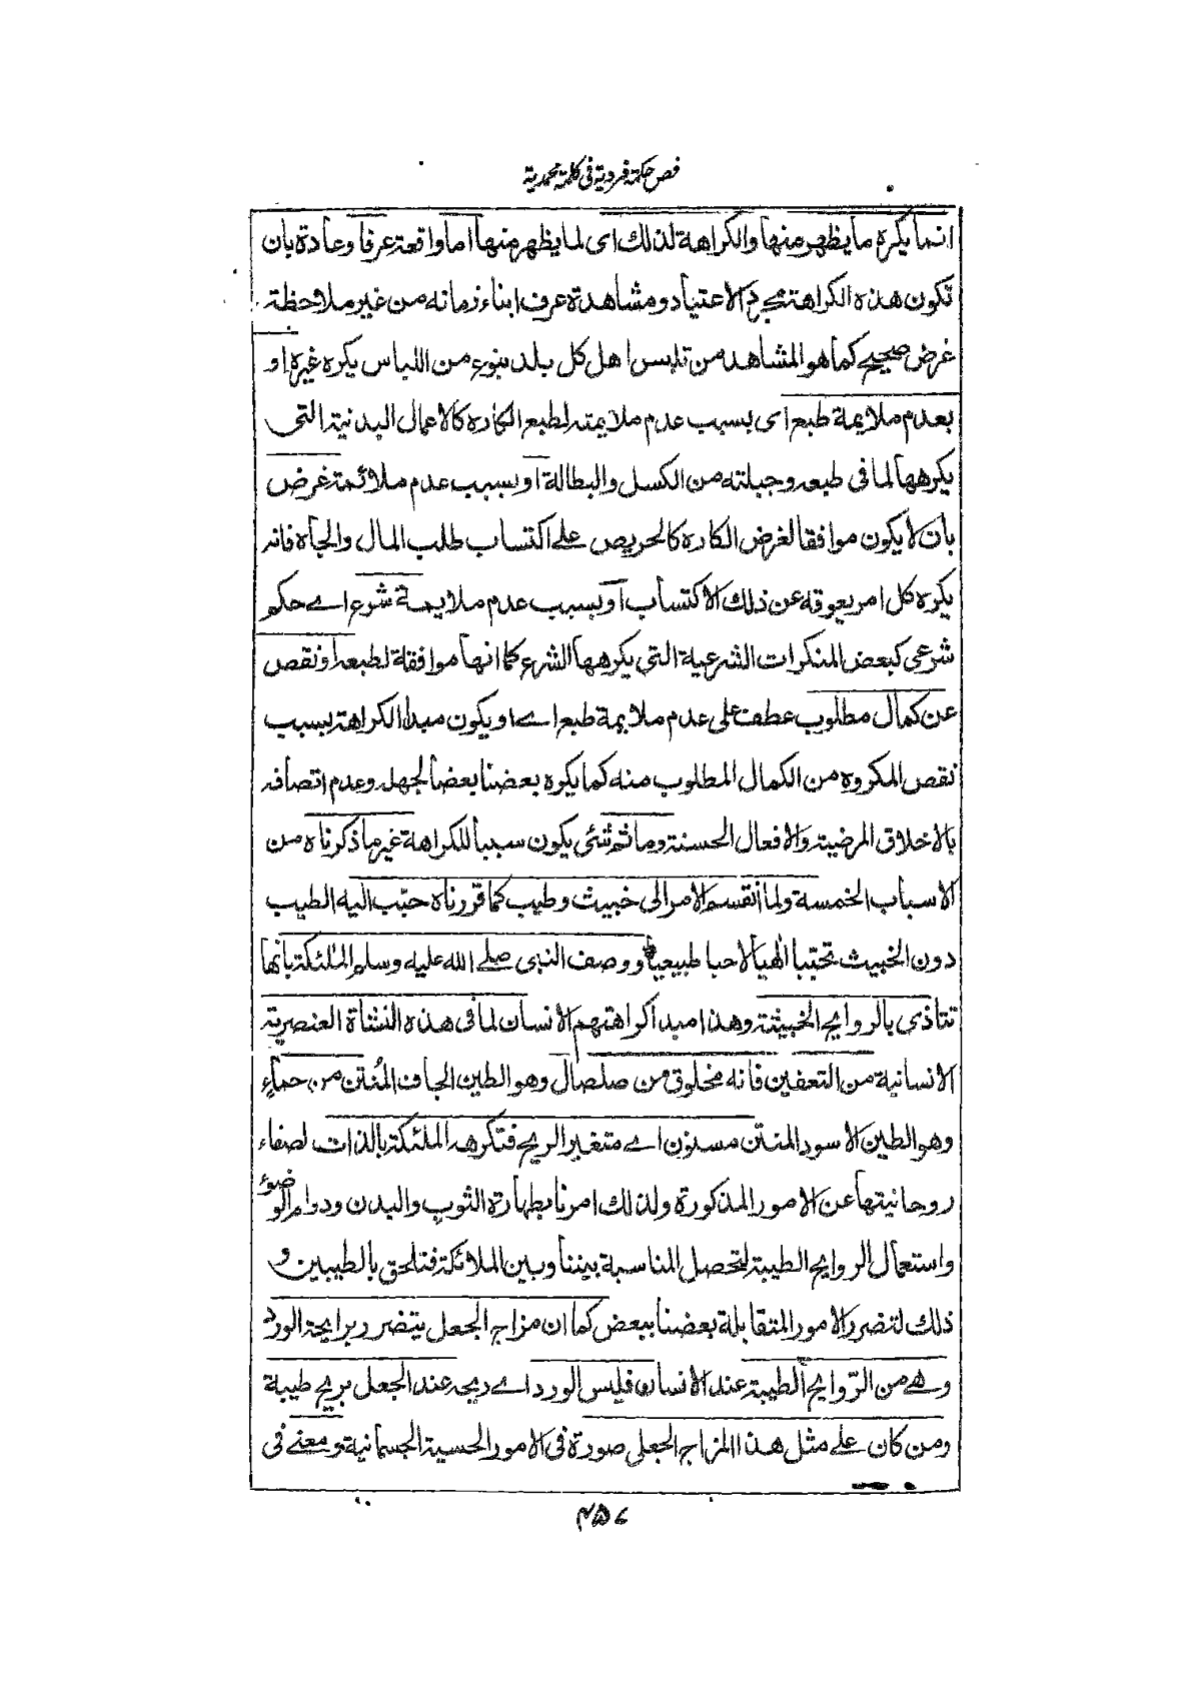 فص حكمة فردية في كلمة محمدية
انما يكره ما يظهر منها والكراهة لذلك اى لما يظهر منها اما واقعة عرفا وعادة بان
تكون هذه الكراهة بمجرد الاعتياد ومشاهدة عرف ابناء زمانه من غير ملاحظة
غرض صحيح كما هو المشاهد من تلبس اهل كل بلد بنوع من اللباس يكره غيره او
بعدم ملايمة طبع اى بسبب عدم ملايمته لطبع الكاره كالاعمال البدنية التى
يكرهها لما فى طبعه وجبلته من الكسل والبطالة او بسبب عدم ملائمة غرض
بان لا يكون موافقا لغرض الكاره كالحريص على اكتساب طلب المال والجاه فانه
يكره كل امر يعوقه عن ذلك الاكتساب او بسبب عدم ملايمة شرع اے حكم
شرعى كبعض المنكرات الشرعية التى يكرهها الشرع كما انها موافقة لطبعه او نقص
عن كمال مطلوب عطف على عدم ملايمة طبع اے او يكون مبدا الكراهة بسبب
نقص المكروه من الكمال المطلوب منه كما يكره بعضنا بعضا لجهله وعدم اتصافه
بالاخلاق المرضية والافعال الحسنة وما ثم شئى يكون سببا للكراهة غير ما ذكرناه من
الاسباب الخمسة ولما انقسم الامر الى خبيث وطيب كما قررناه حبّب اليه الطيب
دون الخبيث تحببا الٰهيا لا حبا طبيعيا ووصف النبى صلے الله عليه وسلم الملٰئكة بانها
تتاذى بالروايح الخبيثة وهذا مبدا كراهتهم الانسان لما فى هذه النشاة العنصرية
الانسانية من التعفين فانه مخلوق من صلصال وهو الطين الجاف المُنتن من حماءٍ
وهو الطين الاسود المنتن مسنون اے متغير الريح فتكرهه الملئكة بالذات لصفاء
روحانيتها عن الامور المذكورة ولذلك امرنا بطهارة الثوب والبدن ودوام الوضوء
واستعمال الروايح الطيبة لتحصل المناسبة بيننا وبين الملائكة فتلحق بالطيبين و
ذلك لتضرر الامور المتقابلة بعضنا ببعض كما ان مزاج الجعل يتضرر برايحة الورد
وهے من الرّوايح الطيبة عند الانسان فليس الورد اے ريحه عند الجعل بريح طيبة
ومن كان علے مثل هذا المزاج الجعلى صورة فى الامور الحسية الجسمانية ومعنے فى